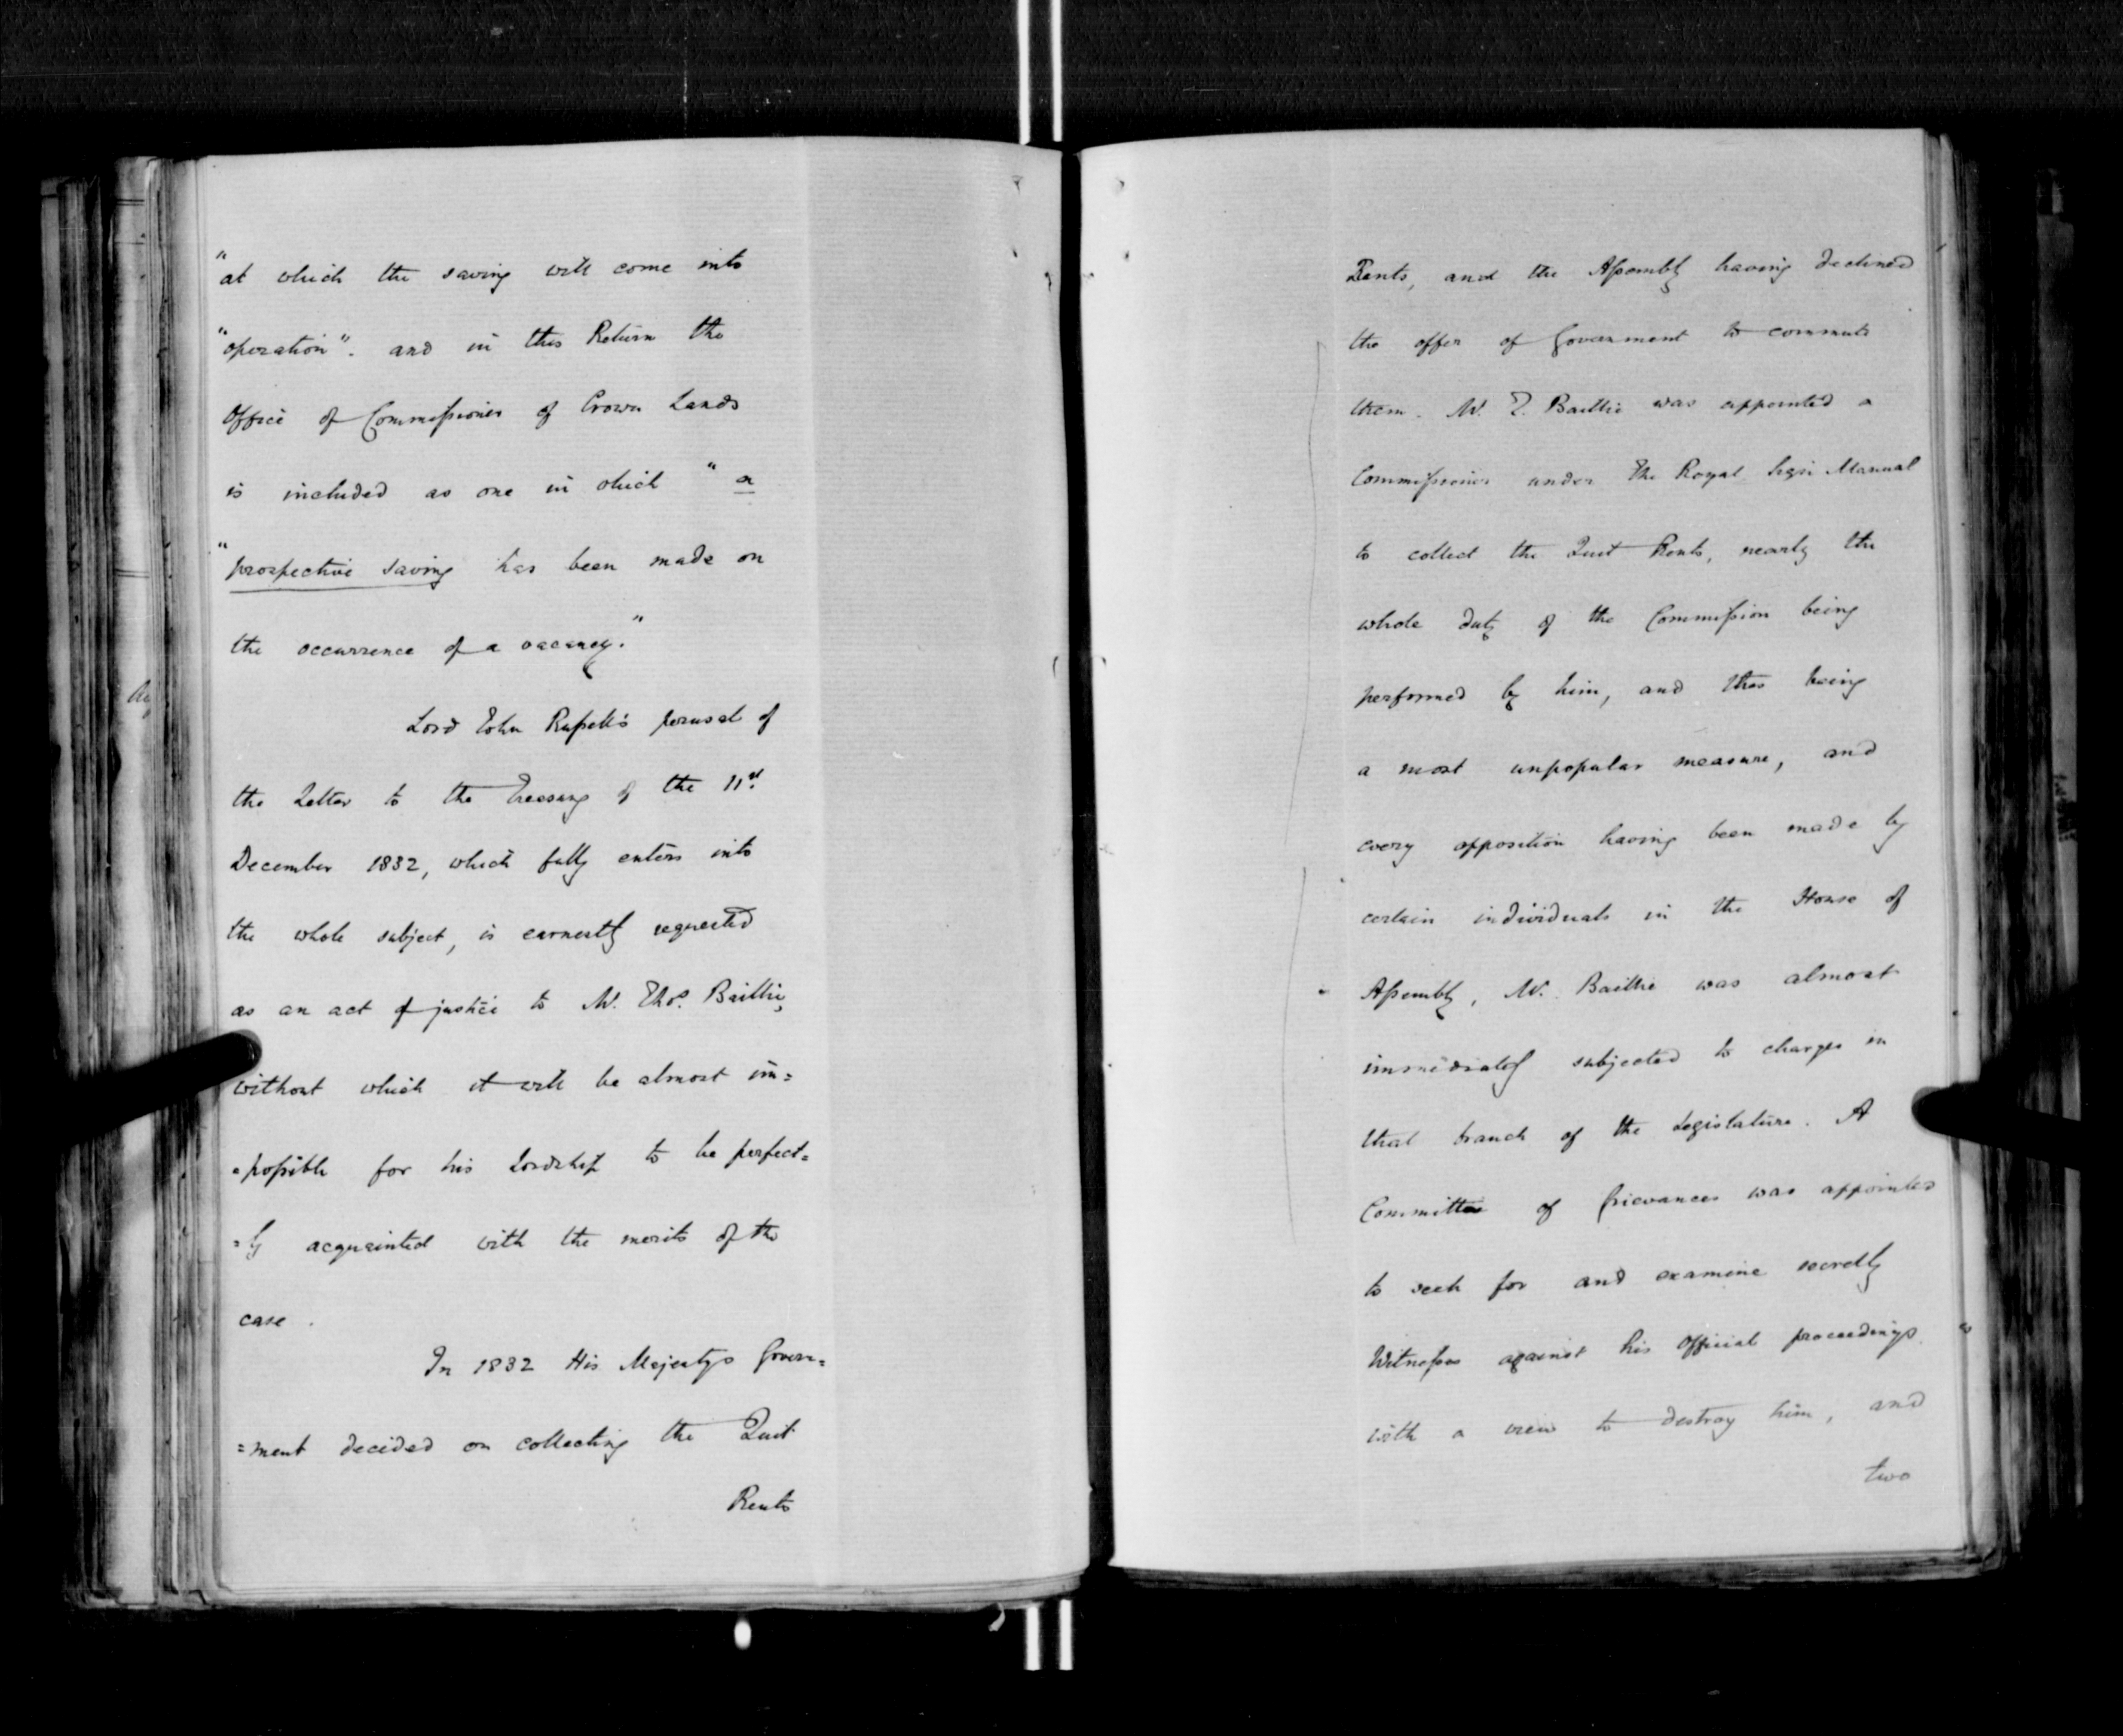 "at which the saving will come into
"operation". and in this Return the
Office of Commissioner of Crown Lands
is included as one in which "a
"prospective saving has been made on
the occurrence of a vacancy."
Lord John Russell's perusal of
the Letter to the Treasury of the 11th
December 1832, which fully enters into
the whole subject, is earnestly requested
as an act of justice to Mr. Thos. Baillie,
without which it will be almost im=
=possible for his Lordship to be perfect=
=ly acquainted with the merits of the
case.
In 1832 His Majestys Govern=
=ment decided on collecting the Quit
Rents
Rents, and the Assembly having declined
the offer of Government to commute
them. Mr. T. Baillie was appointed a
Commissioner under the Royal Sign Manual
to collect the Quit Rents, nearly the
whole duty of the Commission being
performed by him, and this being
a most unpopular measure, and
every opposition having been made by
certain individuals in the House of
Assembly, Mr. Baillie was almost
immediately subjected to charges in
that branch of the Legislature. A
Committee of Grievances was appointed
to seek for and examine secretly
Witnesses against his Official proceedings
with a view to destroy him, and
two